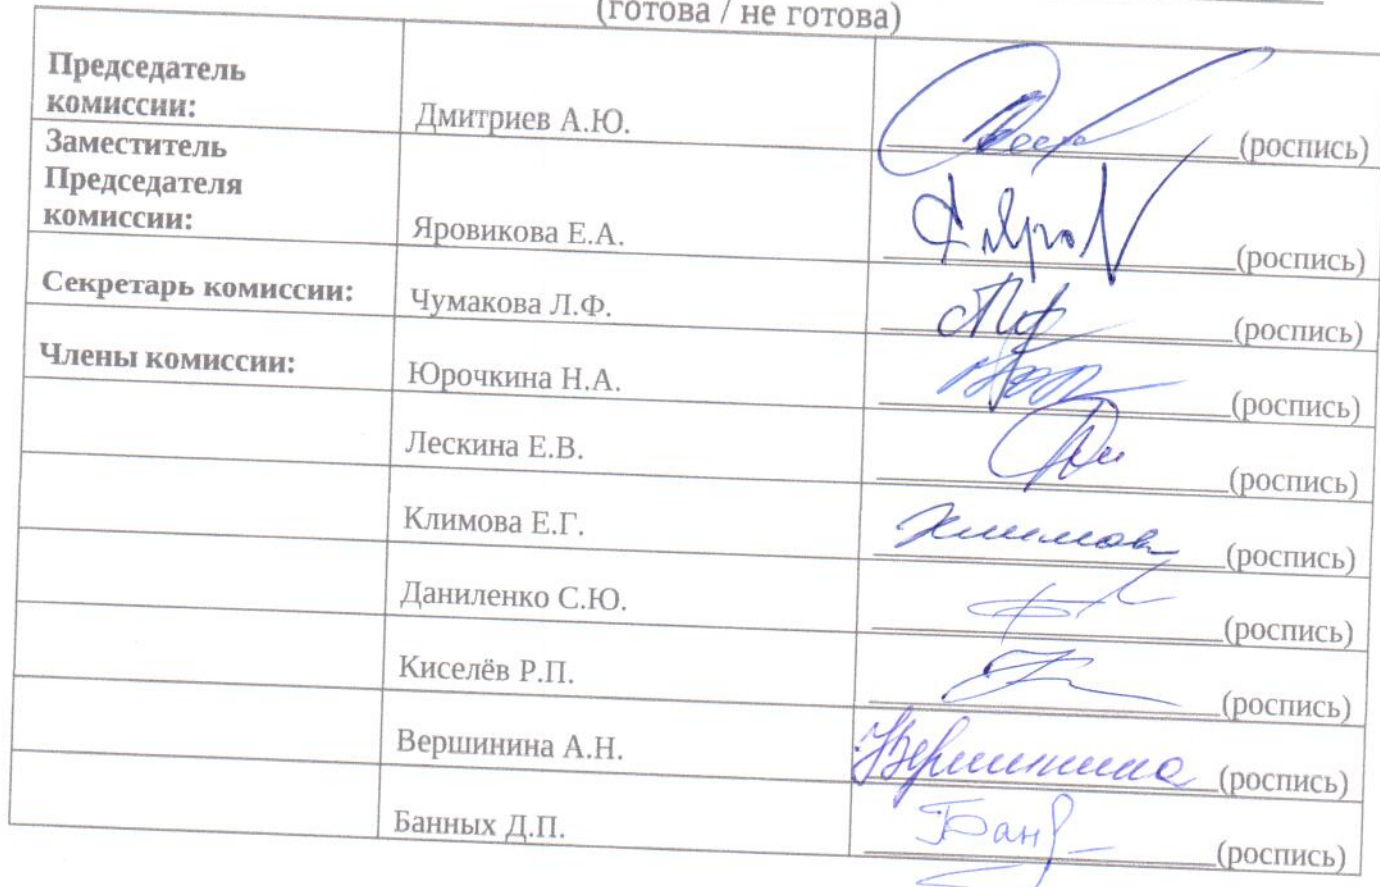 (готова / не готова)
Председатель
комиссии:
Дмитриев А.Ю.
(роспись)
Заместитель
Председателя
комиссии:
Яровикова Е.А.
(роспись)
Секретарь комиссии:
Чумакова Л.Ф.
(роспись)
Члены комиссии:
Юрочкина Н.А.
(роспись)
Лескина Е.В.
(роспись)
Климова Е.Г.
(роспись)
Даниленко С.Ю.
(роспись)
Киселёв Р.П.
(роспись)
Вершинина А.Н.
Вершинина (роспись)
Банных Д.П.
(роспись)